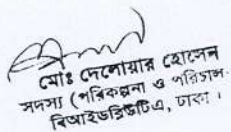 মোঃ দেলোয়ার হোসেন
সদস্য (পরিকল্পনা ও পরিচালন
বিআইডব্লিউটিএ, ঢাকা।